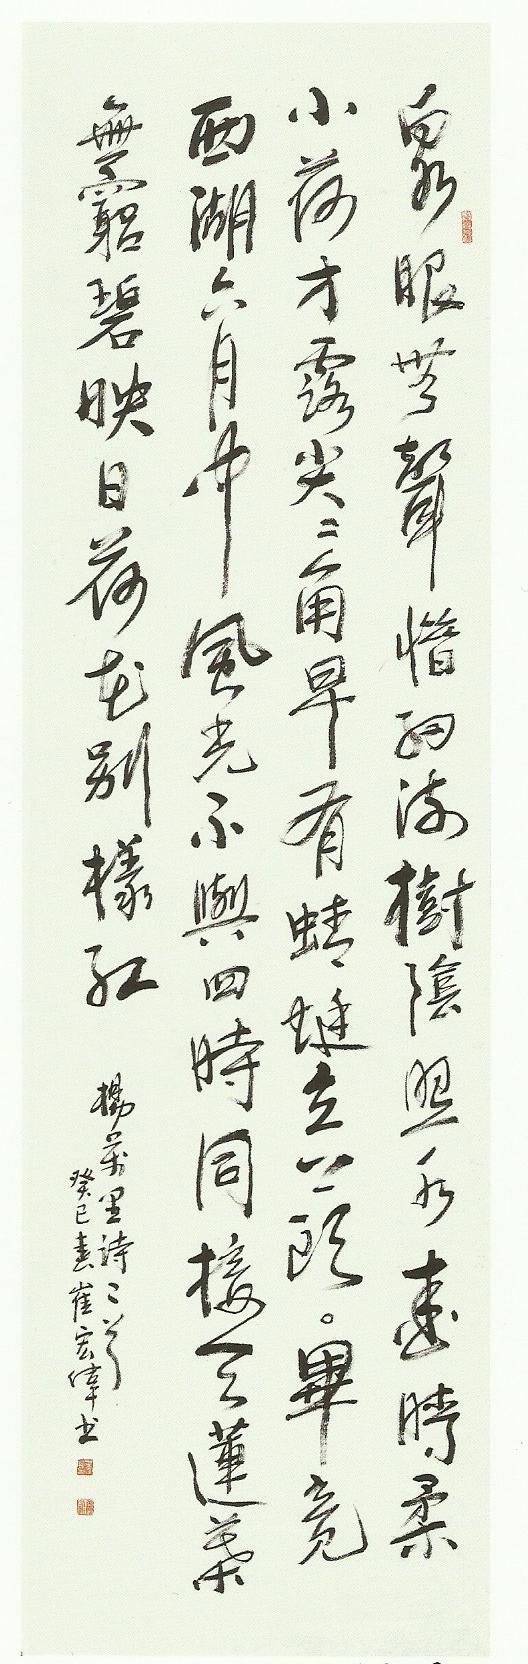 泉眼無聲惜細流樹陰照水愛晴柔
小荷才露尖〻角早有蜻蜓立上頭。畢竟
西湖六月中風光不與四時同接天蓮葉
無窮碧映日荷花別樣紅
楊萬里詩二首
癸巳春崔宏偉书